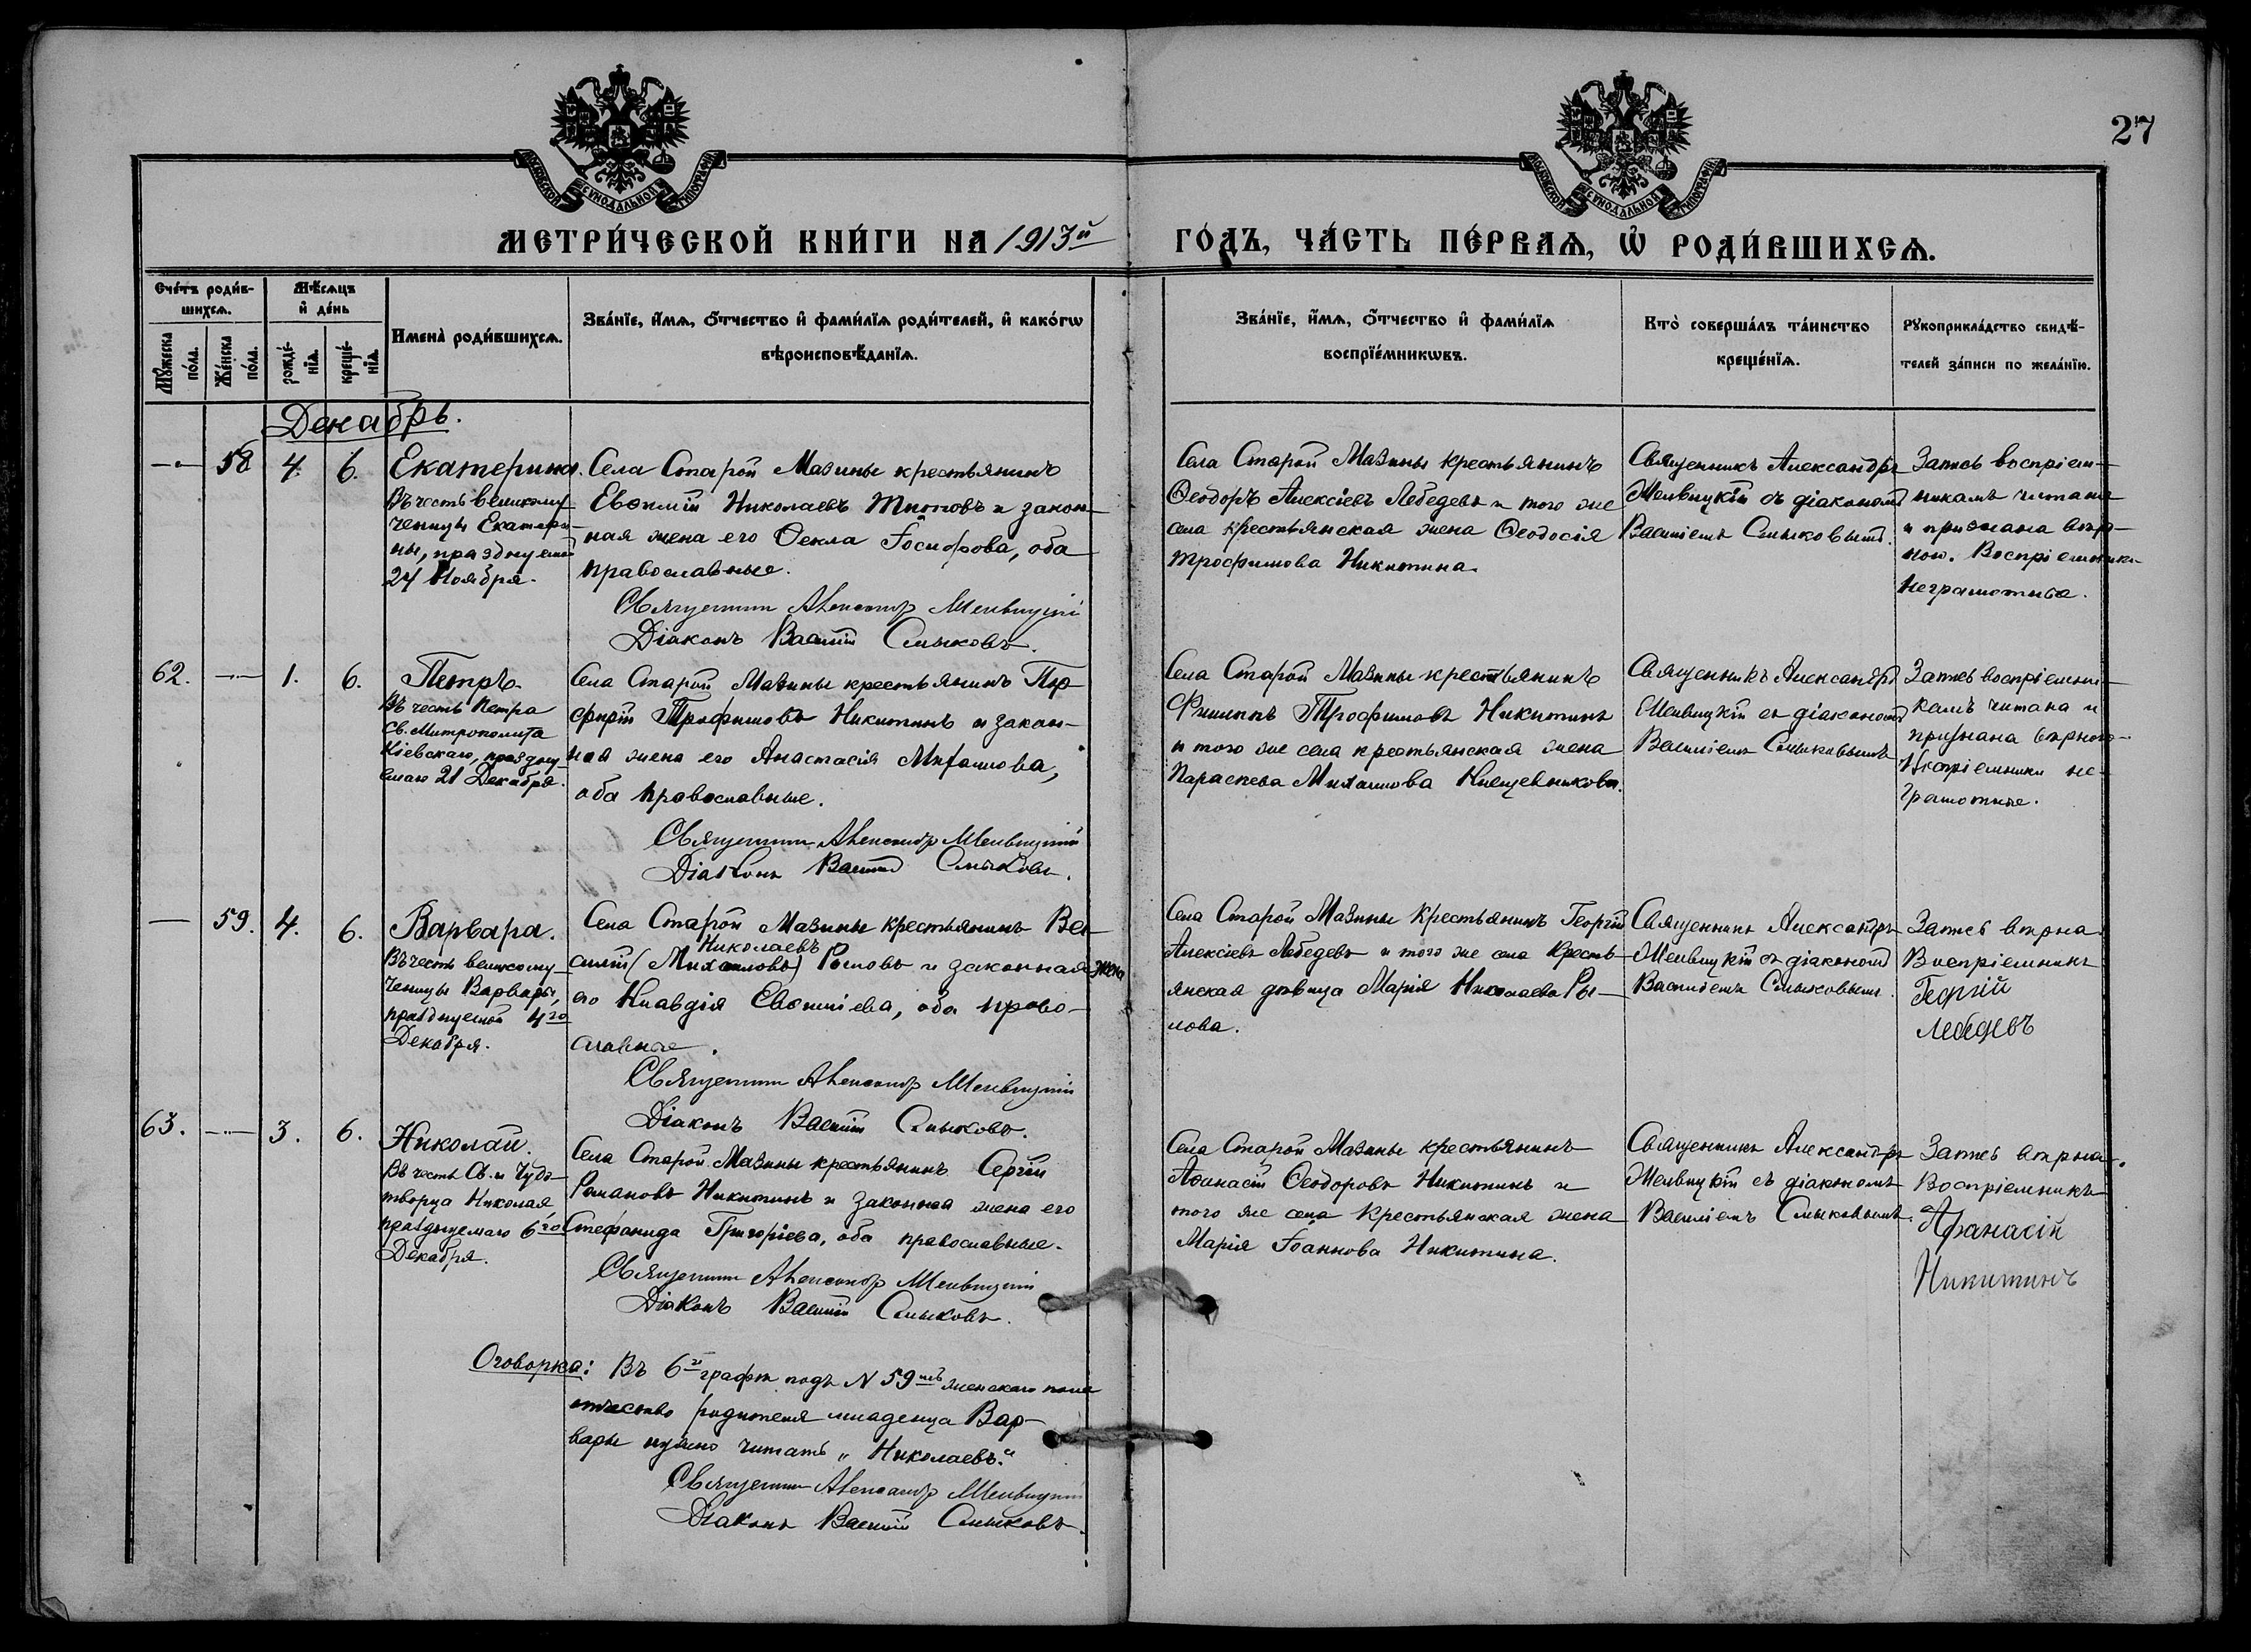 27
МОСКОВСКОЙ СѴНОДАЛЬНОЙ ТИПОГРАФІИ
МОСКОВСКОЙ СѴНОДАЛЬНОЙ ТИПОГРАФІИ
МЕТРИ́ЧЕСКОЙ КНИ́ГИ НА 1913й ГО́ДЪ, ЧА́СТЬ ПЕ́РВАѦ, Ѡ҆ РОДИ́ВШИХСѦ.
Сче́тъ роди́в-
шихсѧ.
Мꙋ́жеска по́ла.
Же́нска по́ла.
Мѣ́сѧцъ
и҆ де́нь
рожде́-нїѧ.
креще́-нїѧ.
Имена̀ роди́вшихсѧ.
Зва́нїе, и҆́мѧ, ѻ҆́тчество и҆ фами́лїѧ роди́телей, и҆ како́гѡ
вѣроисповѣ́данїѧ.
Зва́нїе, и҆́мѧ, ѻ҆́тчество и҆ фами́лїѧ
воспрїе́мникѡвъ.
Кто̀ соверша́лъ та́инство
креще́нїѧ.
Рꙋкоприкла́дство свидѣ́-
телей за́писи по жела́нїю.
Декабрь.
— 58 4. 6.
Екатерина.
Въ честь великому-
ченицы Екатери-
ны, празднуемой
24 Ноября.
Села Старой Мазины крестьянинъ
Евѳимій Николаевъ Титовъ и закон-
ная жена его Ѳекла Іосифова, оба
православные.
Священникъ Александръ
Діаконъ Василій Смыковъ.
Села Старой Мазины крестьянинъ
Ѳеодоръ Алексіевъ Лебедевъ и того же
села крестьянская жена Ѳеодосія
Трофимова Никитина.
Священникъ Александръ
съ діакономъ
Василіемъ Смыковымъ.
Запись воспріем-
никамъ читана
и признана вѣр-
ною. Воспріемники
неграмотные.
62. — 1. 6.
Петръ.
Въ честь Петра
Св. Митрополита
Кіевскаго, праздну-
емаго 21 Декабря.
Села Старой Мазины крестьянинъ Пор-
фирій Трофимовъ Никитинъ и закон-
ная жена его Анастасія Михаилова,
оба православные.
Священникъ Александръ
Діаконъ Василій Смыковъ.
Села Старой Мазины крестьянинъ
Филиппъ Трофимовъ Никитинъ
и того же села крестьянская жена
Параскева Михаилова
Священникъ Александръ
съ діакономъ
Василіемъ Смыковымъ
Запись воспріемни-
камъ читана и
признана вѣрною.
Воспріемники не-
грамотные.
— 59. 4. 6.
Варвара.
Въ честь великому-
ченицы Варвары,
празднуемой 4го
Декабря.
Села Старой Мазины крестьянинъ Ва-
Николаевъ
силій (Михаиловъ) Рыловъ и законная жена
его Клавдія Евѳиміева, оба право-
славные.
Священникъ Александръ
Діаконъ Василій Смыковъ.
Села Старой Мазины крестьянинъ Георгій
Алексіевъ Лебедевъ и того же села кресть-
янская дѣвица Марія Николаева Ры-
лова.
Священникъ Александръ
съ діакономъ
Василіемъ Смыковымъ.
Запись вѣрна.
Воспріемникъ
Георгій
Лебедевъ
63. — 3. 6.
Николай.
Въ честь Св. и Чудо-
творца Николая,
празднуемаго 6го
Декабря.
Села Старой Мазины крестьянинъ Сергій
Романовъ Никитинъ и законная жена его
Стефанида Григоріева, оба православные.
Священникъ Александръ
Діаконъ Василій Смыковъ.
Села Старой Мазины крестьянинъ
Аѳанасій Ѳеодоровъ Никитинъ и
того же села крестьянская жена
Марія Іоаннова Никитина.
Священникъ Александръ
съ діакономъ
Василіемъ Смыковымъ.
Запись вѣрна.
Воспріемникъ
Афанасій
Никитинъ
Оговорка: Въ 6й графѣ подъ N 59мъ женскаго пола
отчество родителя младенца Вар-
вары нужно читать „Николаевъ“.
Священникъ Александръ
Діаконъ Василій Смыковъ.